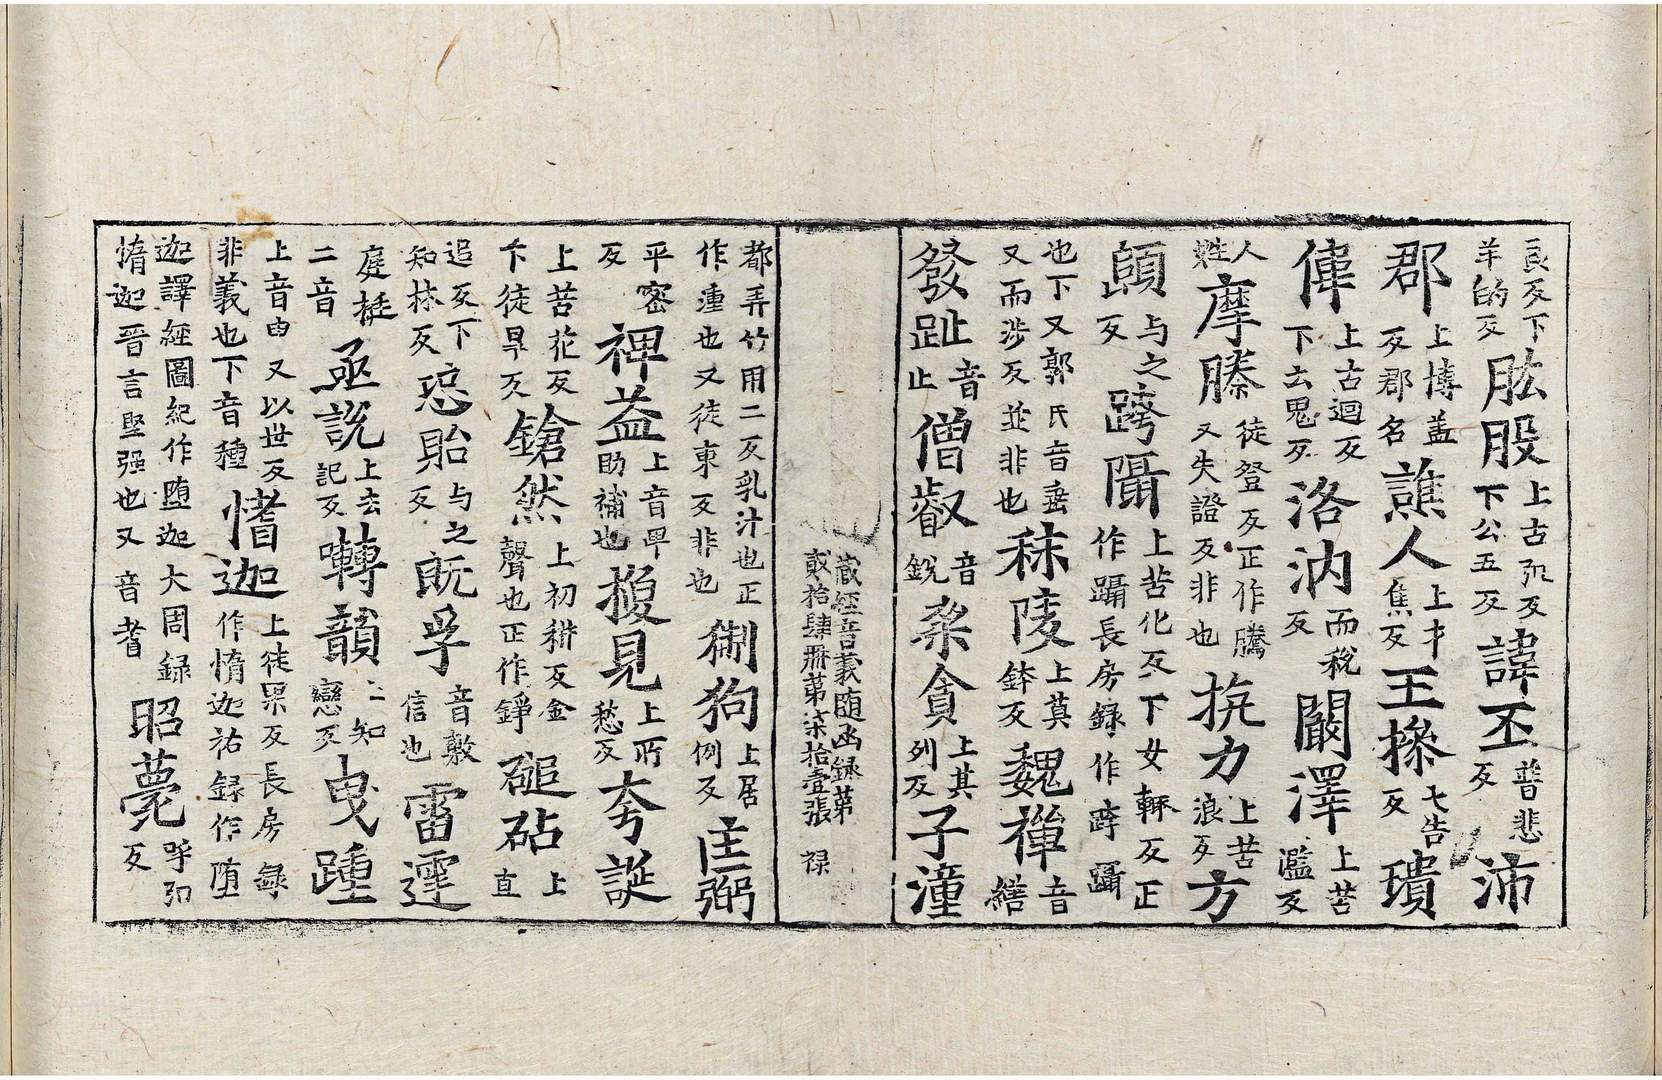 良反下羊的反肱股上古弘反下公五反諱丕普悲反沛
郡上博蓋反郡名譙人上才焦反王摻七告反璝
偉上古迴反下古鬼反洛汭而稅反闞澤上苦濫反
人姓摩騰徒登反正作騰又失證反非也抗力上苦浪反方
頤与之反跨躡上苦化反下女輒反正作躡長房録作跨躡
也下又郭氏音垂又而涉反並非也秣陵上莫鉢反魏禪音繕
發趾音止僧叡音銳桀貪上其列反子潼
藏經音義随函録第貳拾肆冊第柒拾壹張 禄
都弄竹用二反乳汁也正作湩也又徒東反非也猘狗上居例反匡弼
平密反裨益上音卑助補也榝見上所愁反夸誕
上苦花反下徒旱反鎗然上初耕反金聲也正作錚磓砧上直
追反下知林反惡貽与之反既孚音敷信也雷霆
庭挺二音亟説上去記反囀韻上知戀反曳踵
上音由又以世反非義也下音種愭迦上徒果反長房録作惰迦祐録作堕
迦譯經圖紀作堕迦大周録惰迦晉言堅强也又音耆昭薨呼弘反